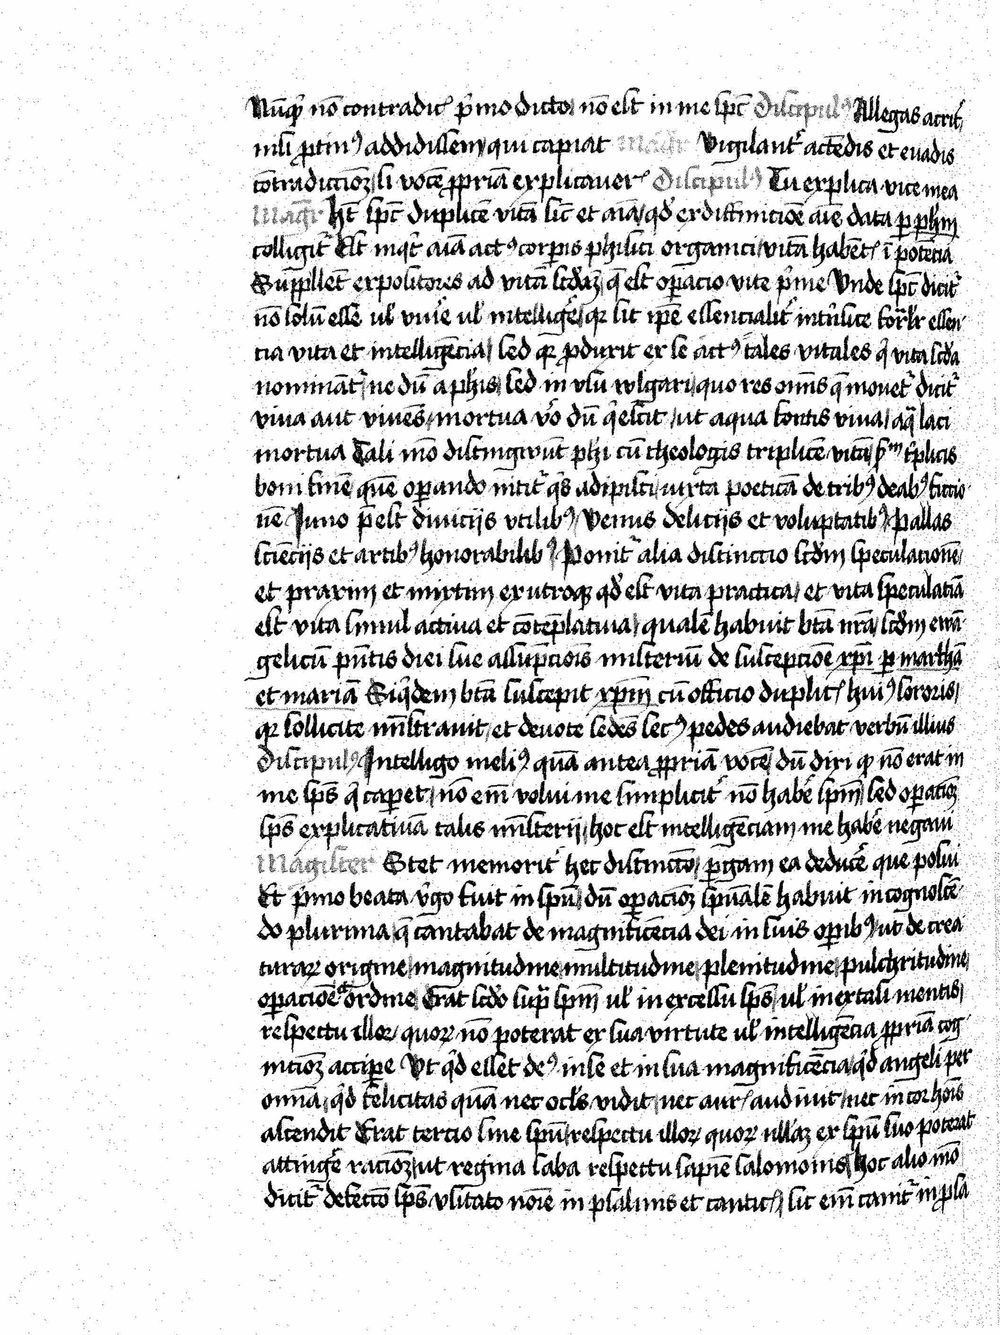 Nūqͥd nō contradicͭ pͥmo dicto nō est in me spūs Discipulꝰ Allegas acrit͛
nisi ꝓtinꝰ addidissem qui capiat Magr̄ Vigilant͛ actēdis et euadis
cōtradictionē si vocē ꝓpriā explicauer͛ Discipulꝰ Tu explica vice mea
Magr̄ Ht̄ spūs duplicē vitā sic̄ et aīa qd̓ ex diffinicioē aīe data ꝑ ph̄m
colligit͛ Est inqͭ aīa actꝰ corꝑis phisici organici vitā habent͛ ī potēcia
Suppllēt expositores ad vitā scd̄aȝ q̄ est oꝑacio vite pͥme Vnde spūs dicit͛
nō solū esse ul̓ viuē ul̓ intelligē qꝛ sit ip̄e essencialit͛ intͥnsice formalit͛ essen
cia vita et intelligēcia sed qꝛ ꝓducit ex se actꝰ tales vitales qͥ vita scd̄a
nominat͛ ne dū a ph̄is sed in vsu wlgari quo res om̄s q̄ mouet͛ dicit͛
viua aut viuēs mortua v̓o dū qͥescit ut aqua fontis viua aq̄ laci
mortua Tali mō distingwūt ph̄i cū theologis triplicē vitā pͫ tͥplicis
boni finē quē oꝑando nitit͛ qͥs adipisci iuxta poeticā de tribꝰ deabꝰ fictio
nē Iuno p̄est diuicijs vtilibꝰ Venus delicijs et voluptatibꝰ Pallas
sciēcijs et artibꝰ honorabilibꝰ Ponit͛ alia distinctio scd̄m speculacionē
et praxim et mixtim ex utroqꝫ qd̓ est vita practica et vita speculatīa
est vita simul actiua et cōtēplatiua qualē habuit btā nr̄a scd̄m ewā
gelicū pn̄tis diei sue assūpciōis misteriū de suscepcioē xp̄i ꝑ marthā
et mariā Siqͥdem btā suscepit xp̄m cū officio duplic͛ huiꝰ sororis
qꝛ sollicite mīstrauit et deuote sedēs secꝰ pedes audiebat verbū illius
Discipulꝰ Intelligo meliꝰ quā antea ꝓpriā vocē dū dixi qͩ nō erat in
me spūs qͥ caꝑet nō em̄ volui me simplicit͛ nō habē spm̄ sed oꝑacionē
spūs explicatiuā talis misterij hoc est intelligēciam me habē negaui
Magister Stet memorit͛ hec distinctō ꝑgam ea deducē que posui
Et pͥmo beata v̓go fuit in spū dū oꝑacionē spūalē habuit in cognoscē
do plurima q̄ cantabat de magnificēcia dei in suis oꝑibꝰ ut de crea
turaꝝ origine magnitudine multitudine plenitudine pulchritudine
oꝑacioē et ordine Erat scd̓o supra spm̄ ul̓ in excessu spūs ul̓ in extasi mentis
respectu illoꝝ quoꝝ nō poterat ex sua virtute ul̓ intelligēcia ꝓpriā cog
nicionē accipe Vt qͥd esset deꝰ in se et in sua magnificēcia qͥd angeli per
omnia qͥd felicitas quā nec ocl̓s vidit nec aur͛ audiuit nec in cor hoīs
ascendit Erat tercio sine spū respectu illoꝝ quoꝝ nullaȝ ex spū suo poterat
attingē racionē ut regina saba respectu sapiē salomonis hoc alio mō
dicit͛ defectō spūs vsitato noīe in psalmis et canticͭ sic em̄ canit͛ in psa